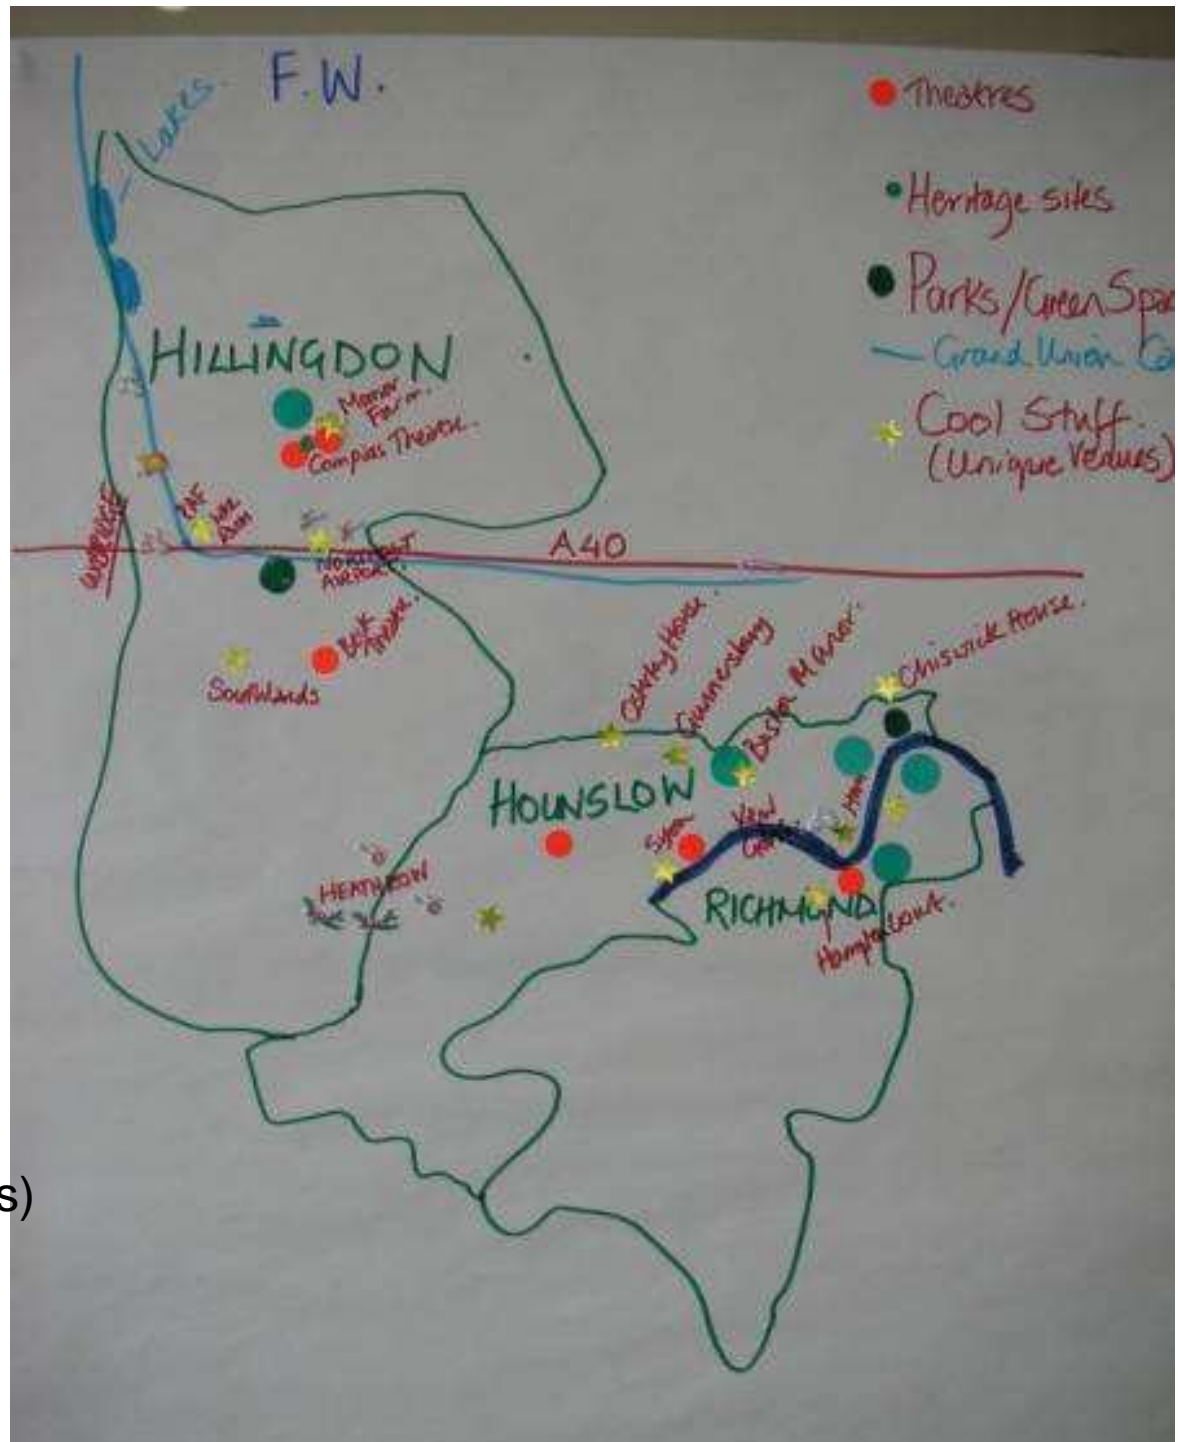 F.W.
Lakes.
Theatres
Heritage sites
Parks/Green Spac
Grand Union Ca
Cool Stuff.
(Unique Venues)
HILLINGDON
Manor
Farm.
Compass Theatre.
UXBRIDGE
RAF
A40
NORTHOLT
AIRPORT.
Beck
Theatre.
Southlands
Gunnersbury
Boston Manor.
Chiswick House.
HOUNSLOW
Syon
Kew
HEATHROW
RICHMOND
Hampton Court.
s)